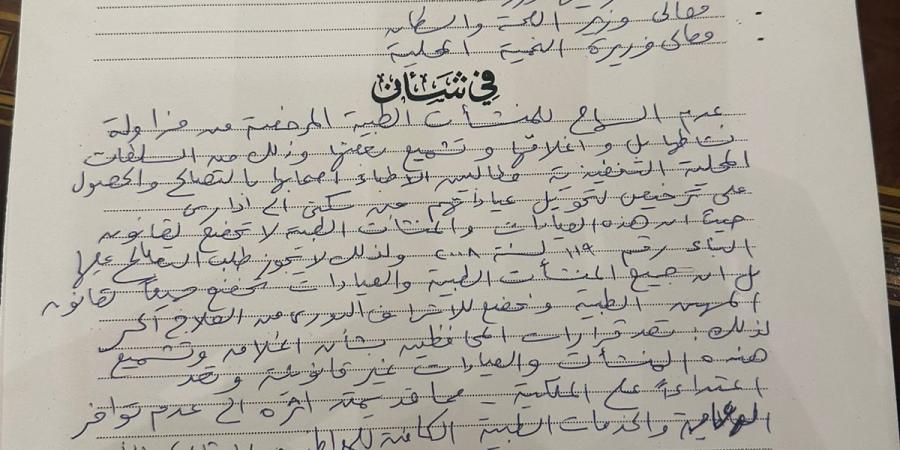 معالى وزير الصحة والسكان
معالى وزيرة التنمية المحلية
في شأن
عدم السماح للمنشآت الطبية المرخصة من مزاولة
نشاطها بل واغلاقها وتشميع بعضها وذلك من السلطات
المحلية التنفيذية ومطالبة الأطباء أصحابها بالتصالح والحصول
على ترخيص لتحويل عياداتهم من سكنى الى ادارى
حيث ان هذه العيادات والمنشآت الطبية لا تخضع لقانون
البناء رقم ١١٩ لسنة ٢٠٠٨ ولذلك لا يجوز طلب التصالح عليها
بل ان جميع المنشآت الطبية والعيادات تخضع جميعاً لقانون
المهن الطبية وتخضع للاشراف الدورى من العلاج الحر
لذلك : تعد قرارات المحافظين بشأن اغلاق وتشميع
هذه المنشآت والعيادات غير قانونية وتعد
اعتداءاً على الملكية - مما قد يمتد اثره الى عدم توافر
والخدمات الطبية الكافية